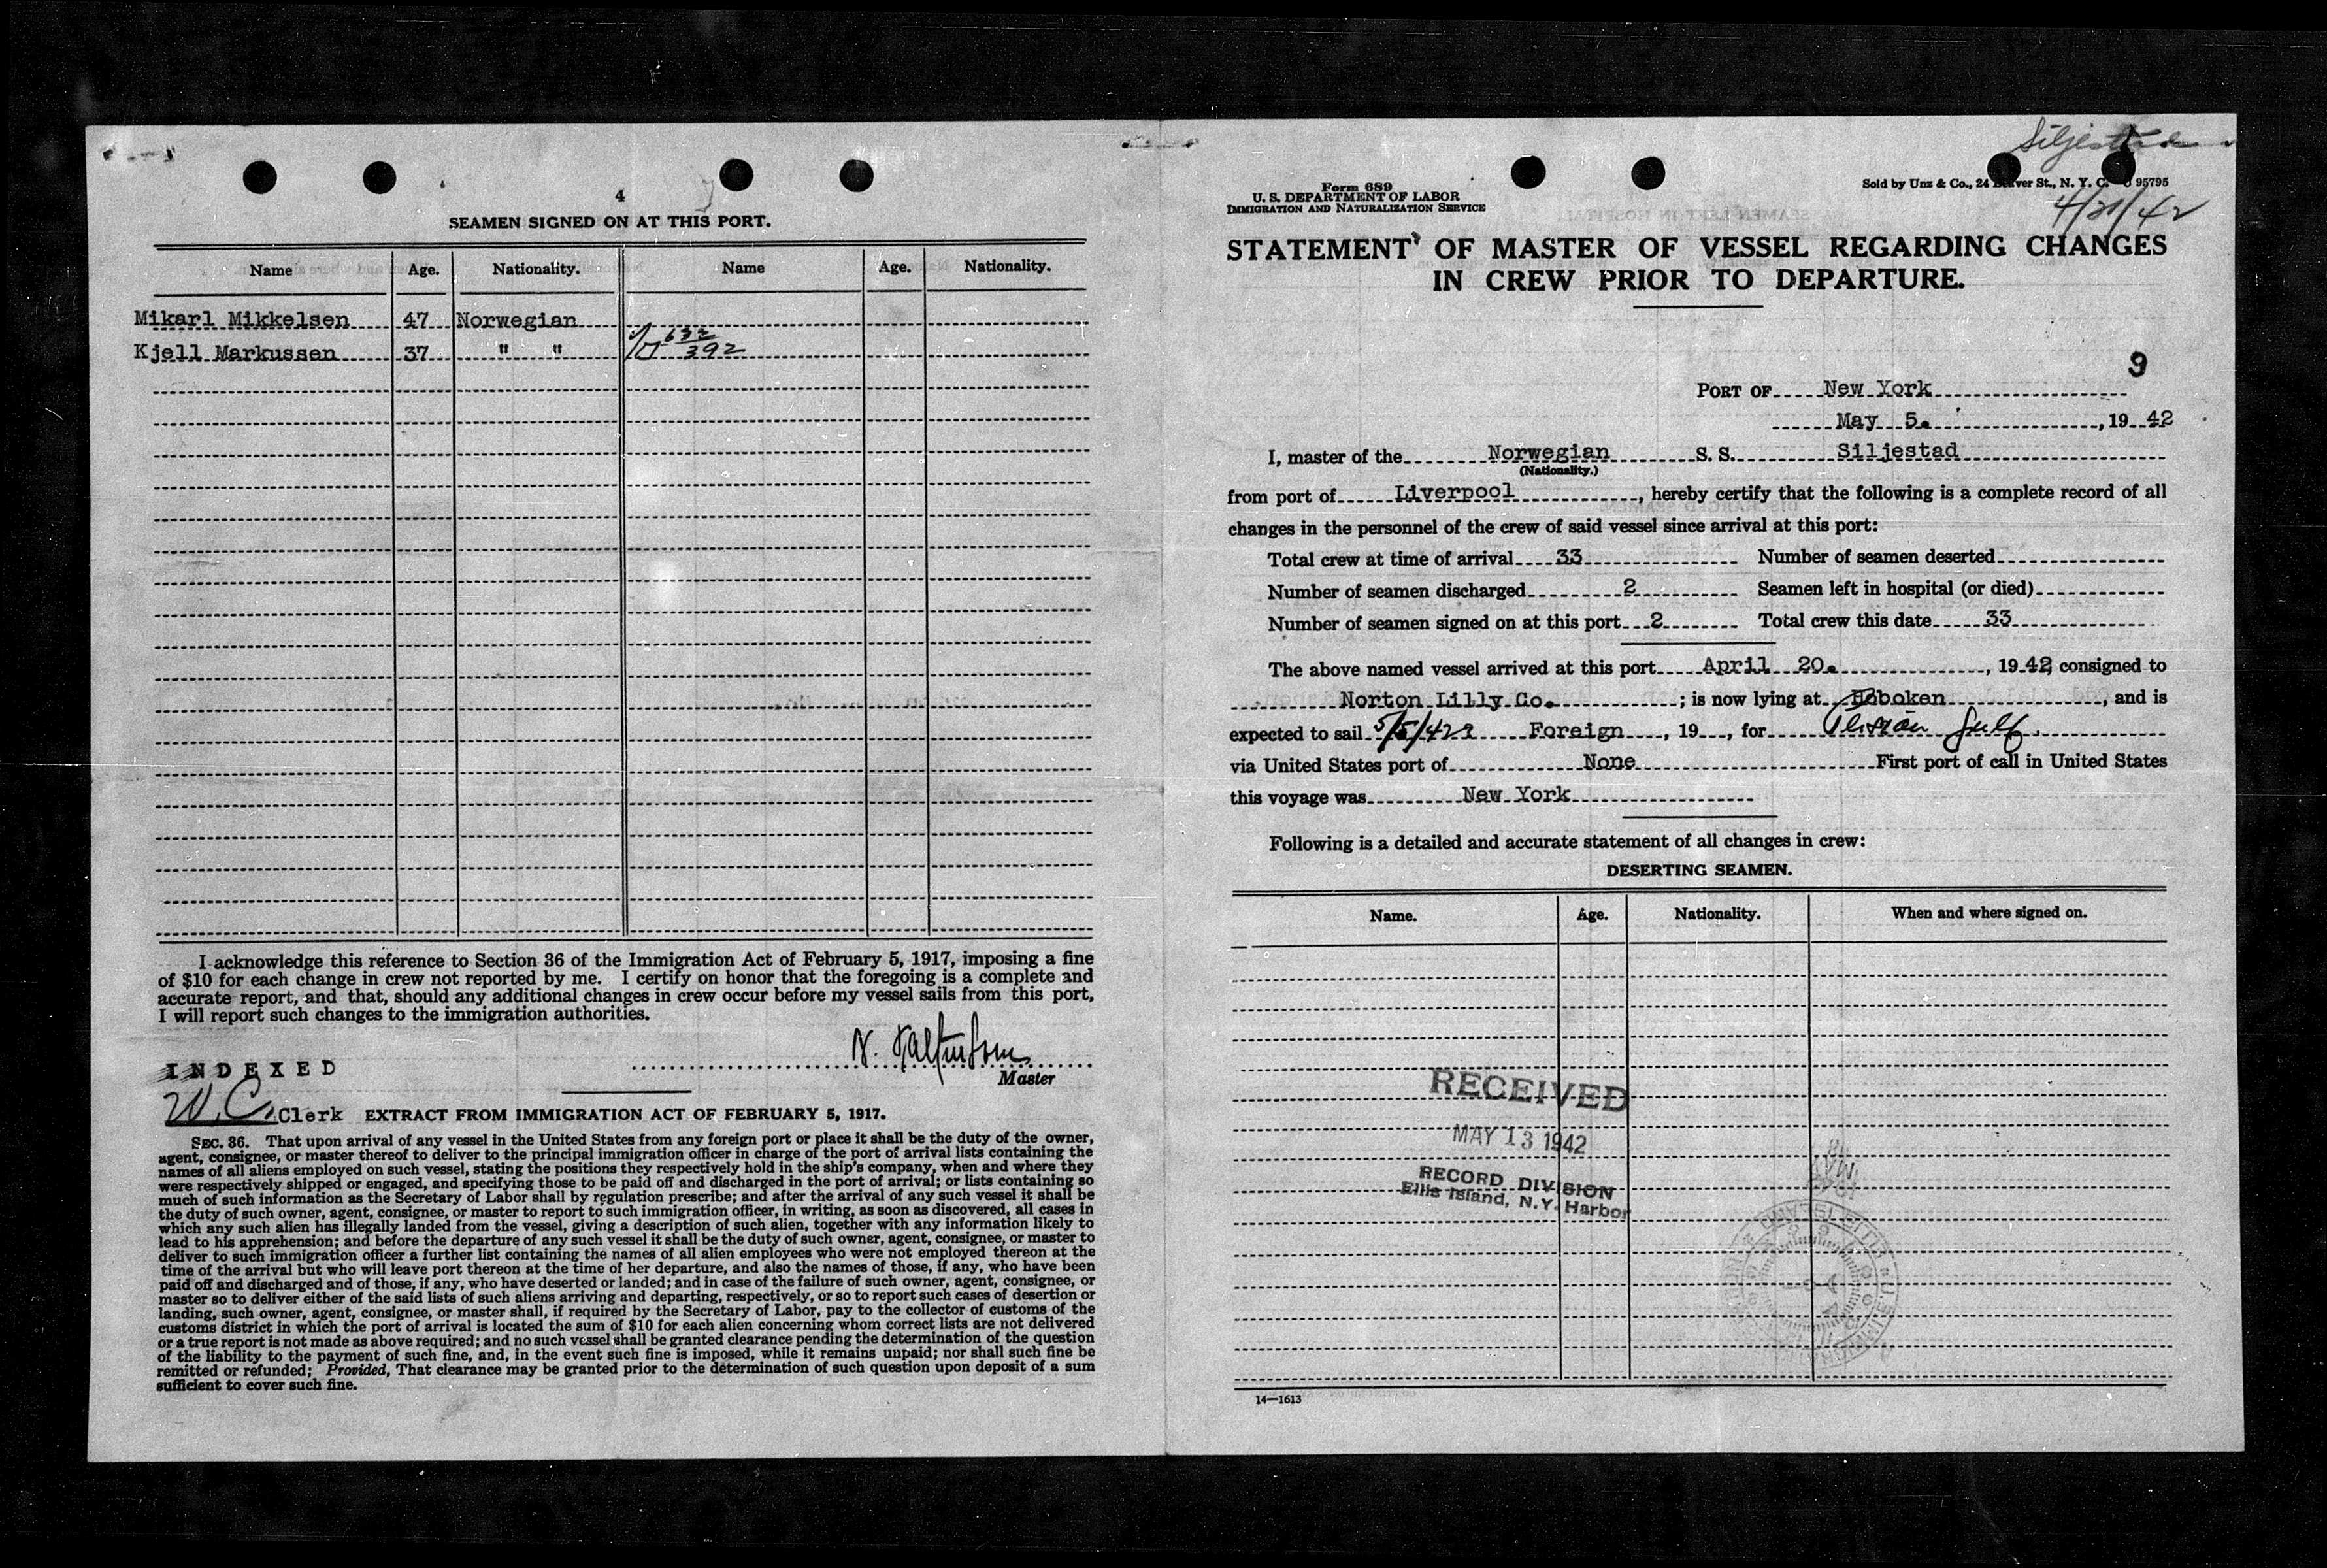 4
SEAMEN SIGNED ON AT THIS PORT.
Name Age. Nationality. Name Age. Nationality.
Mikarl Mikkelsen 47 Norwegian
Kjell Markussen 37 " "
632
392
I acknowledge this reference to Section 36 of the Immigration Act of February 5, 1917, imposing a fine
of $10 for each change in crew not reported by me. I certify on honor that the foregoing is a complete and
accurate report, and that, should any additional changes in crew occur before my vessel sails from this port,
I will report such changes to the immigration authorities.
INDEXED
Master
W. C. Clerk EXTRACT FROM IMMIGRATION ACT OF FEBRUARY 5, 1917.
SEC. 36. That upon arrival of any vessel in the United States from any foreign port or place it shall be the duty of the owner,
agent, consignee, or master thereof to deliver to the principal immigration officer in charge of the port of arrival lists containing the
names of all aliens employed on such vessel, stating the positions they respectively hold in the ship's company, when and where they
were respectively shipped or engaged, and specifying those to be paid off and discharged in the port of arrival; or lists containing so
much of such information as the Secretary of Labor shall by regulation prescribe; and after the arrival of any such vessel it shall be
the duty of such owner, agent, consignee, or master to report to such immigration officer, in writing, as soon as discovered, all cases in
which any such alien has illegally landed from the vessel, giving a description of such alien, together with any information likely to
lead to his apprehension; and before the departure of any such vessel it shall be the duty of such owner, agent, consignee, or master to
deliver to such immigration officer a further list containing the names of all alien employees who were not employed thereon at the
time of the arrival but who will leave port thereon at the time of her departure, and also the names of those, if any, who have been
paid off and discharged and of those, if any, who have deserted or landed; and in case of the failure of such owner, agent, consignee, or
master so to deliver either of the said lists of such aliens arriving and departing, respectively, or so to report such cases of desertion or
landing, such owner, agent, consignee, or master shall, if required by the Secretary of Labor, pay to the collector of customs of the
customs district in which the port of arrival is located the sum of $10 for each alien concerning whom correct lists are not delivered
or a true report is not made as above required; and no such vessel shall be granted clearance pending the determination of the question
of the liability to the payment of such fine, and, in the event such fine is imposed, while it remains unpaid; nor shall such fine be
remitted or refunded; Provided, That clearance may be granted prior to the determination of such question upon deposit of a sum
sufficient to cover such fine.
Siljestad
Form 689
U. S. DEPARTMENT OF LABOR
IMMIGRATION AND NATURALIZATION SERVICE
Sold by Unz & Co., 24 Beaver St., N. Y. C. 95795
STATEMENT OF MASTER OF VESSEL REGARDING CHANGES
IN CREW PRIOR TO DEPARTURE.
9
PORT OF New York
May 5. , 19 42
I, master of the Norwegian S. S. Siljestad
(Nationality.)
from port of Liverpool, hereby certify that the following is a complete record of all
changes in the personnel of the crew of said vessel since arrival at this port:
Total crew at time of arrival 33 Number of seamen deserted
Number of seamen discharged 2 Seamen left in hospital (or died)
Number of seamen signed on at this port 2 Total crew this date 33
The above named vessel arrived at this port April 20. , 19 42, consigned to
Norton Lilly Co. ; is now lying at Hoboken, and is
expected to sail 5/5/42 Foreign, 19 , for Persian Gulf.
via United States port of None First port of call in United States
this voyage was New York
Following is a detailed and accurate statement of all changes in crew:
DESERTING SEAMEN.
Name. Age. Nationality. When and where signed on.
RECEIVED
MAY 13 1942
RECORD DIVISION
Ellis Island, N.Y. Harbor
14—1613